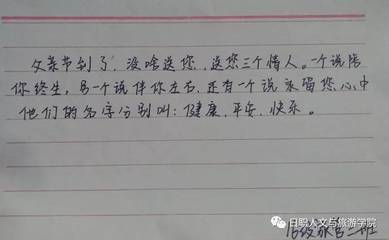 父亲节到了，没啥送您，送您三个情人。一个说陪
你终生，另一个说伴你左右，还有一个说永留您心中
他们的名字分别叫：健康、平安、快乐。
16级家管二班
日职人文与旅游学院